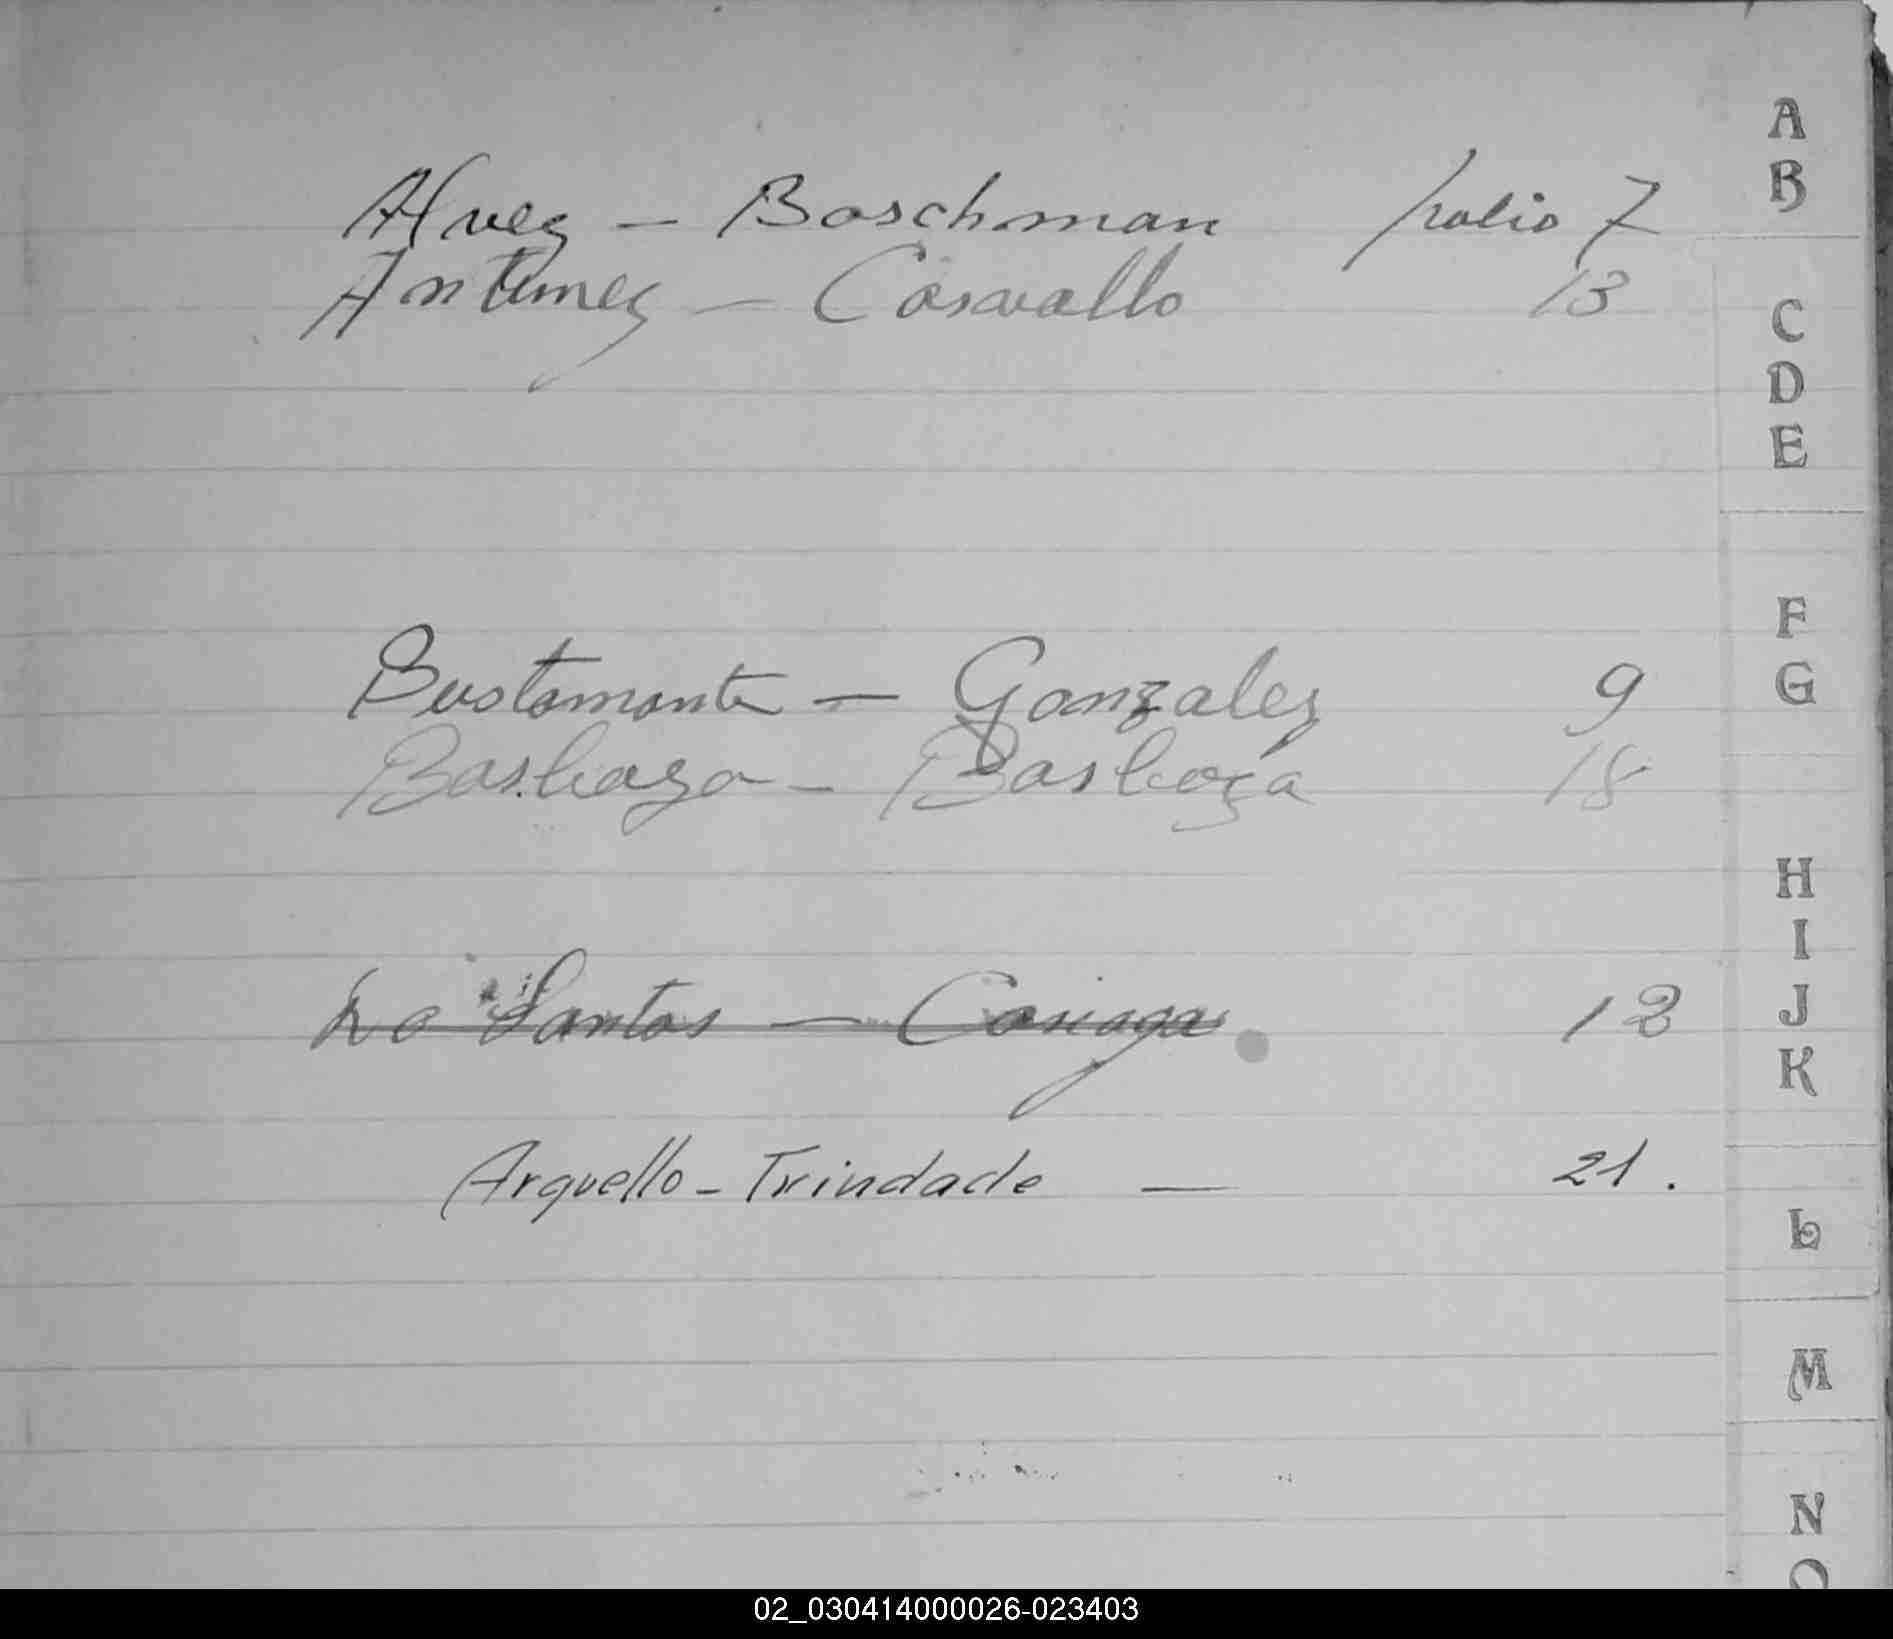 Alvez – Boschman folio 7
Antunez – Carvallo 13
Bustamante – Gonzalez 9
Barboza – Barboza 18
Do Santos – Cariaga 12
Arguello – Trindade — 21.
A
B
C
D
E
F
G
H
I
J
K
L
M
N
O
02_030414000026-023403